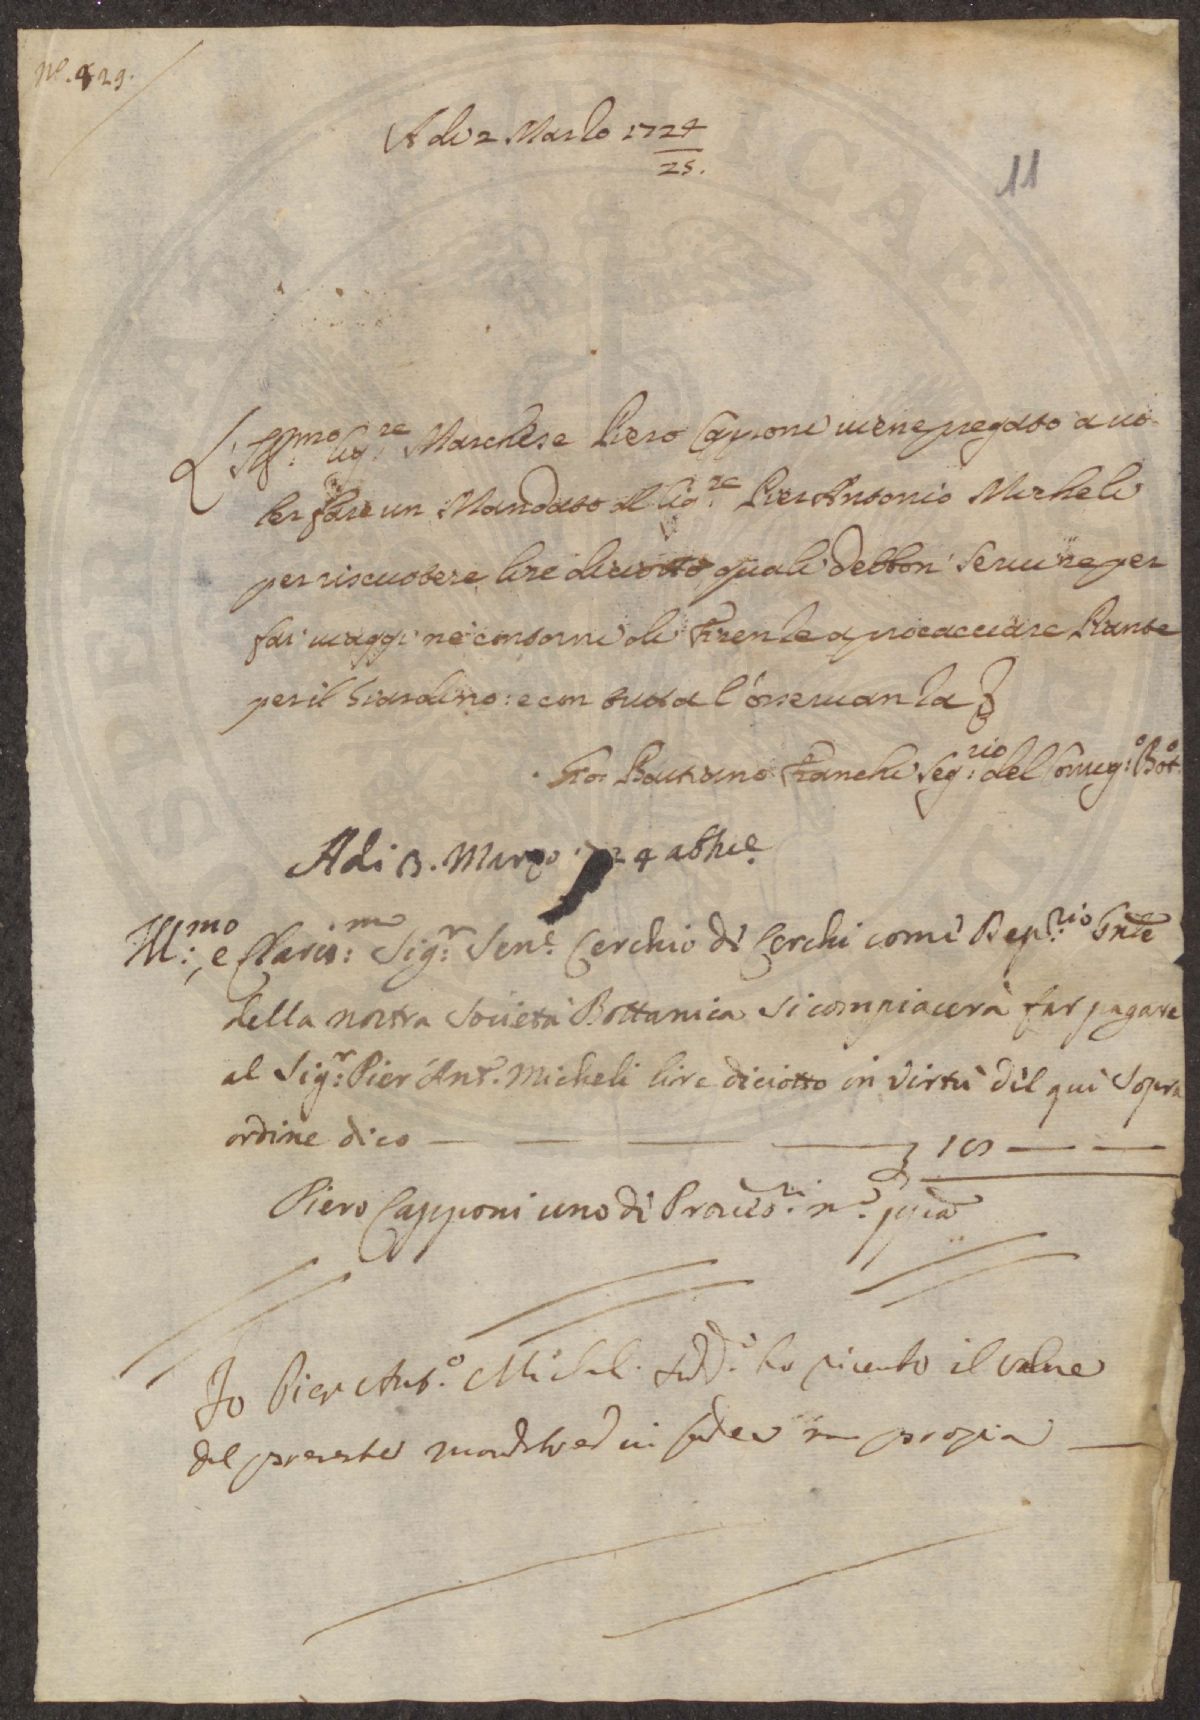 N.º 429.
A di 2 Marzo 1724
25.
11
L'Ill.mo Sig.re Marchese Piero Capponi viene pregato a vo-
ler fare un Mandato al Sig.re Pier Antonio Micheli
per riscuotere lire diciotto quali debbon' servire per
far' viaggi ne' contorni di Firenze a procacciare Piante
per il Giardino: e con tutta l'osservanza
Gio: Bautista Franchi Seg.rio del Conveg:o Bot.o
A di 13. Marzo 1724 ab Inc.e
Ill:mo, e Claris:mo Sig:r Sen:e Cerchio de Cerchi come Dep.rio
della nostra Società Bottanica si compiacerà far pagare
al Sig:r Pier Ant.o Micheli lire diciotto in virtù del qui sopra
ordine dico — — — — 18 — —
Piero Capponi uno di Provved.ri m.o pp.a
Io Pier Ant.o Micheli sudd.o ho ricevuto il valore
del presente mandato ed in fede mano propria —